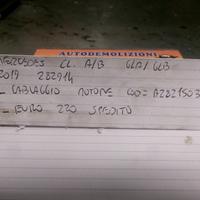 AUTODEMOLIZIONI
MERCEDES CL. A/B GLA/GLB
2019 282914
- CABLAGGIO MOTORE COD= A2821503
- EURO 220 SPEDITO